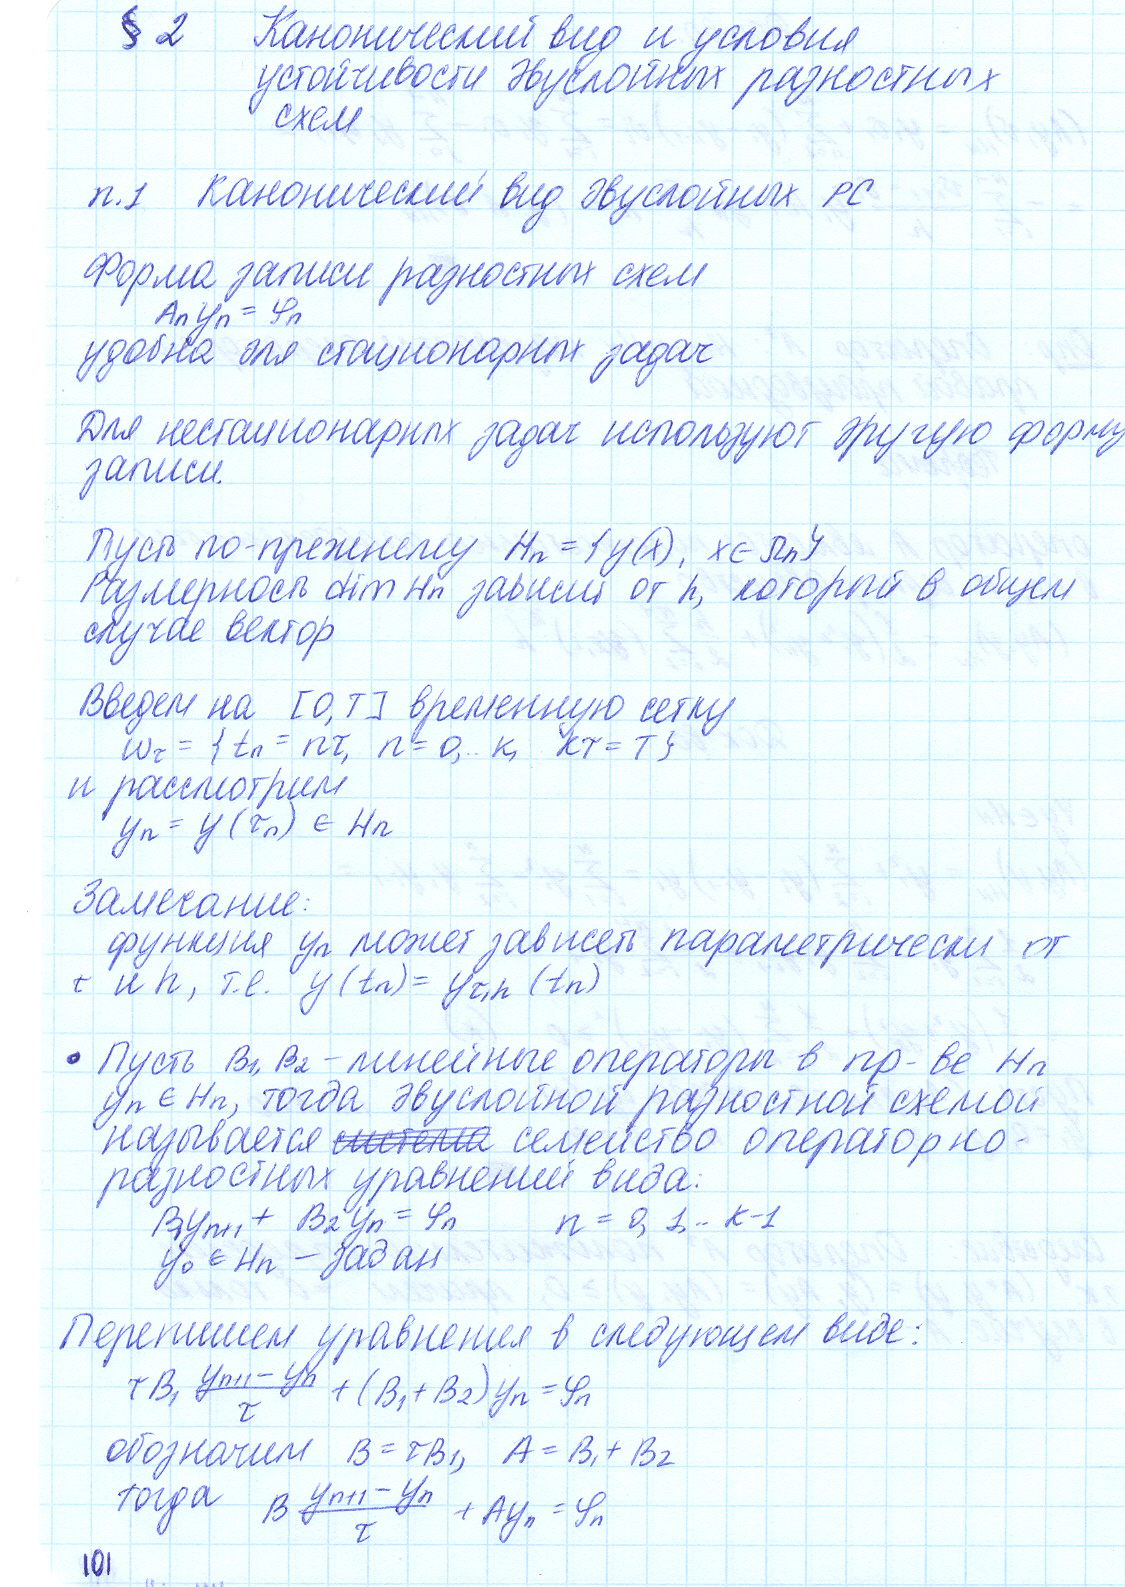 § 2 Канонический вид и условия
устойчивости двуслойных разностных
схем
п.1 Канонический вид двуслойных РС
Форма записи разностных схем
Aₕyₕ = φₕ
удобна для стационарных задач
Для нестационарных задач используют другую форму
записи.
Пусть по-прежнему Hₕ = {y(x), x ∈ Ωₕ}
Размерность dim Hₕ зависит от h, который в общем
случае вектор
Введем на [0,T] временную сетку
ω_τ = { tₙ = nτ, n = 0,.. K, Kτ = T}
и рассмотрим
yₙ = y(τₙ) ∈ Hₕ
Замечание:
функция yₙ может зависеть параметрически от
τ и h, т.е. y(tₙ) = y_τ,h (tₙ)
• Пусть B₁, B₂ – линейные операторы в пр-ве Hₕ
yₙ ∈ Hₕ, тогда двуслойной разностной схемой
называется система семейство операторно-
разностных уравнений вида:
B₁yₙ₊₁ + B₂yₙ = φₙ n = 0, 1,.. K-1
y₀ ∈ Hₕ – задан
Перепишем уравнения в следующем виде:
τB₁ (yₙ₊₁ - yₙ)/τ + (B₁ + B₂)yₙ = φₙ
обозначим B = τB₁, A = B₁ + B₂
тогда B (yₙ₊₁ - yₙ)/τ + Ayₙ = φₙ
101